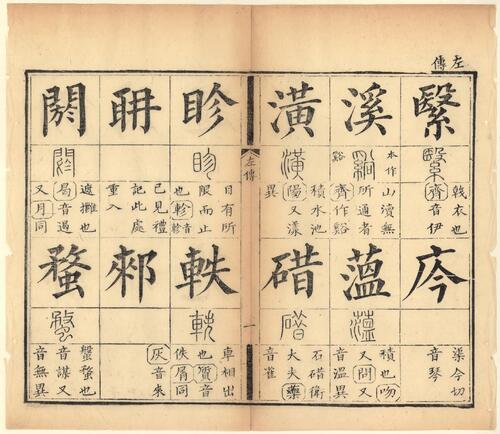 左傳
繄
戟衣也
齊音伊
溪
本作山瀆無
所通者
齊作谿
谿
潢
積水池
陽又漾
異
庈
渠今切
音琴
薀
積也吻
又問又
音溫異
碏
石碏衛
大夫藥
音雀
左傳
一
眕
目有所
服而止
也軫音
耼
已見禮
記此處
重入
閼
遮攤也
曷音遏
又月同
軼
車相出
也質音
佚屑同
郲
灰音來
蝥
盤蝥也
音謀又
音無異